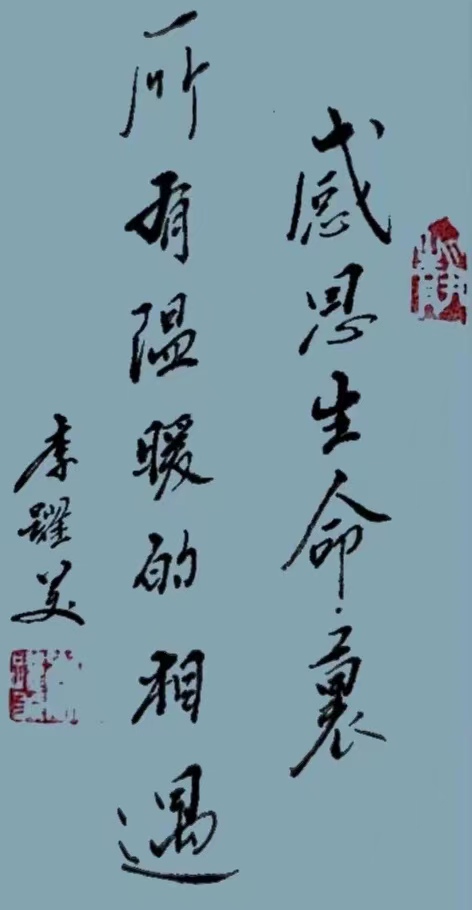 感恩生命裏
所有温暖的相遇
李躍美